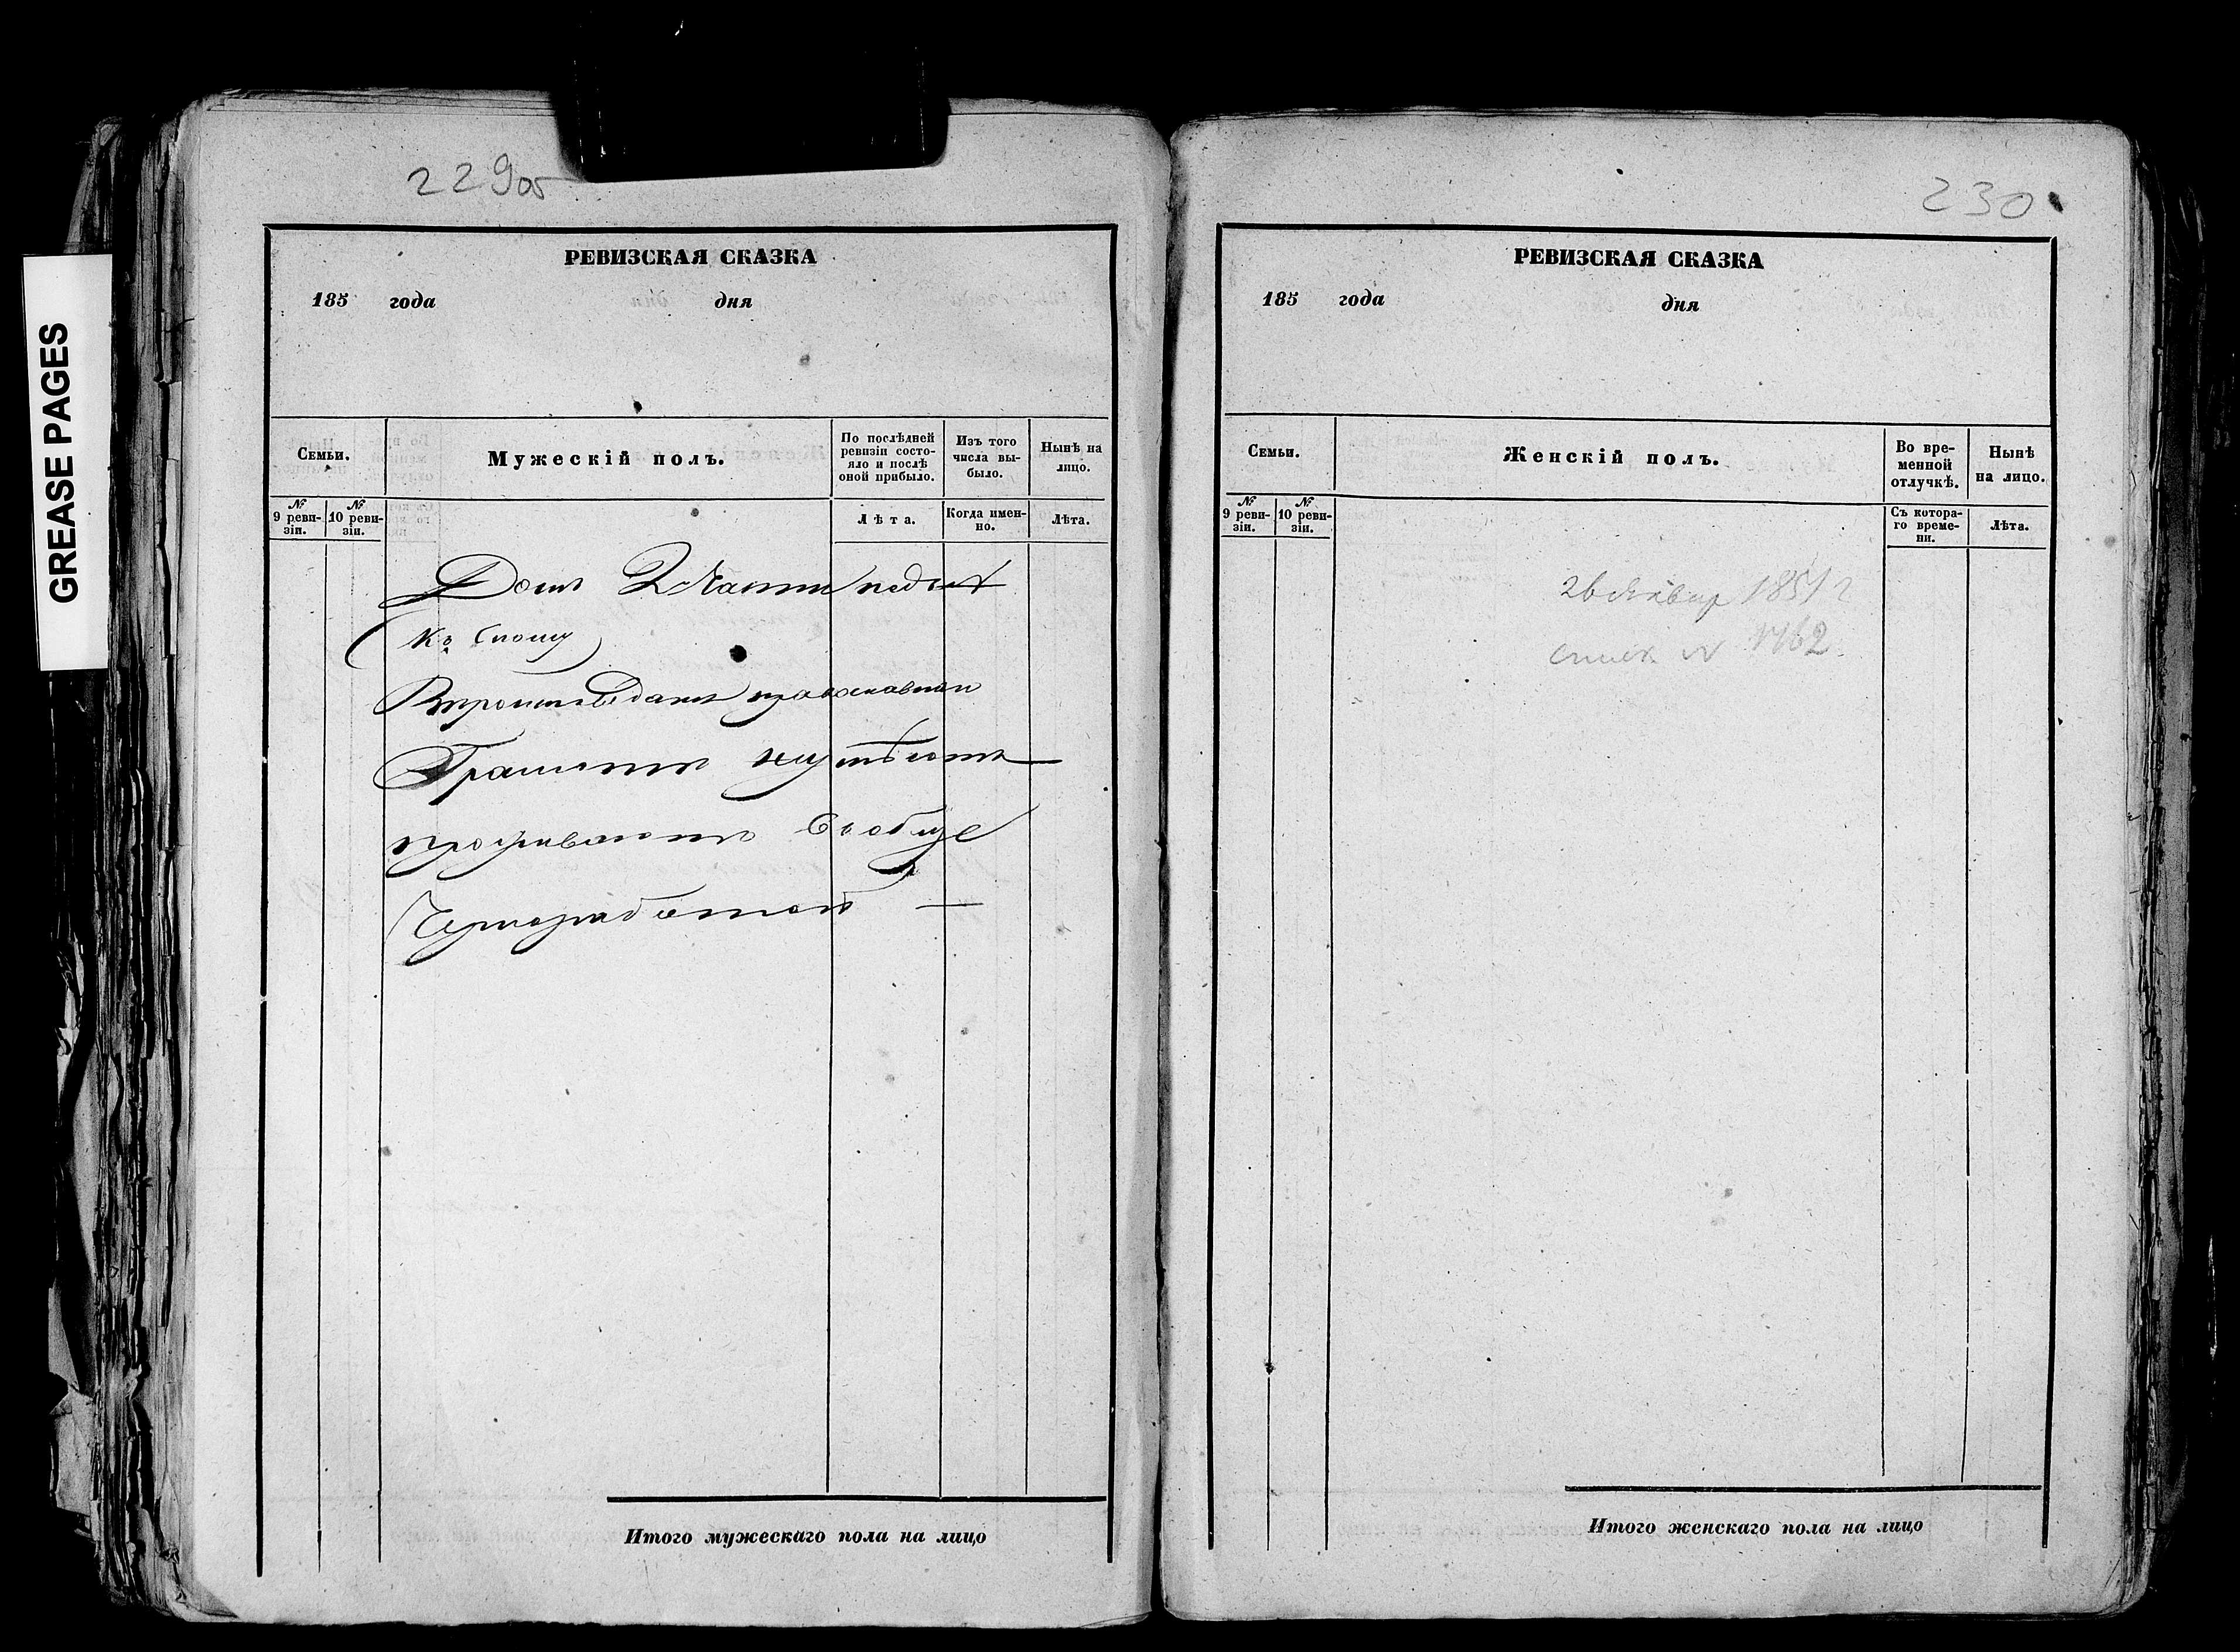 GREASE PAGES
229об
РЕВИЗСКАЯ СКАЗКА
185 года дня
Семьи.
Мужескій полъ.
По послѣдней ревизіи состояло и послѣ оной прибыло.
Изъ того числа выбыло.
Нынѣ на лицо.
№ 9 ревизіи.
№ 10 ревизіи.
Лѣта.
Когда именно.
Лѣта.
Домъ 2 Части
Къ
православнаго
Грамотѣ неумѣютъ
проживаютъ
Чернорабочіе
Итого мужескаго пола на лицо
230
РЕВИЗСКАЯ СКАЗКА
185 года дня
Семьи.
Женскій полъ.
Во временной отлучкѣ.
Нынѣ на лицо.
№ 9 ревизіи.
№ 10 ревизіи.
Съ котораго времени.
Лѣта.
1851 г
№ 1762
Итого женскаго пола на лицо